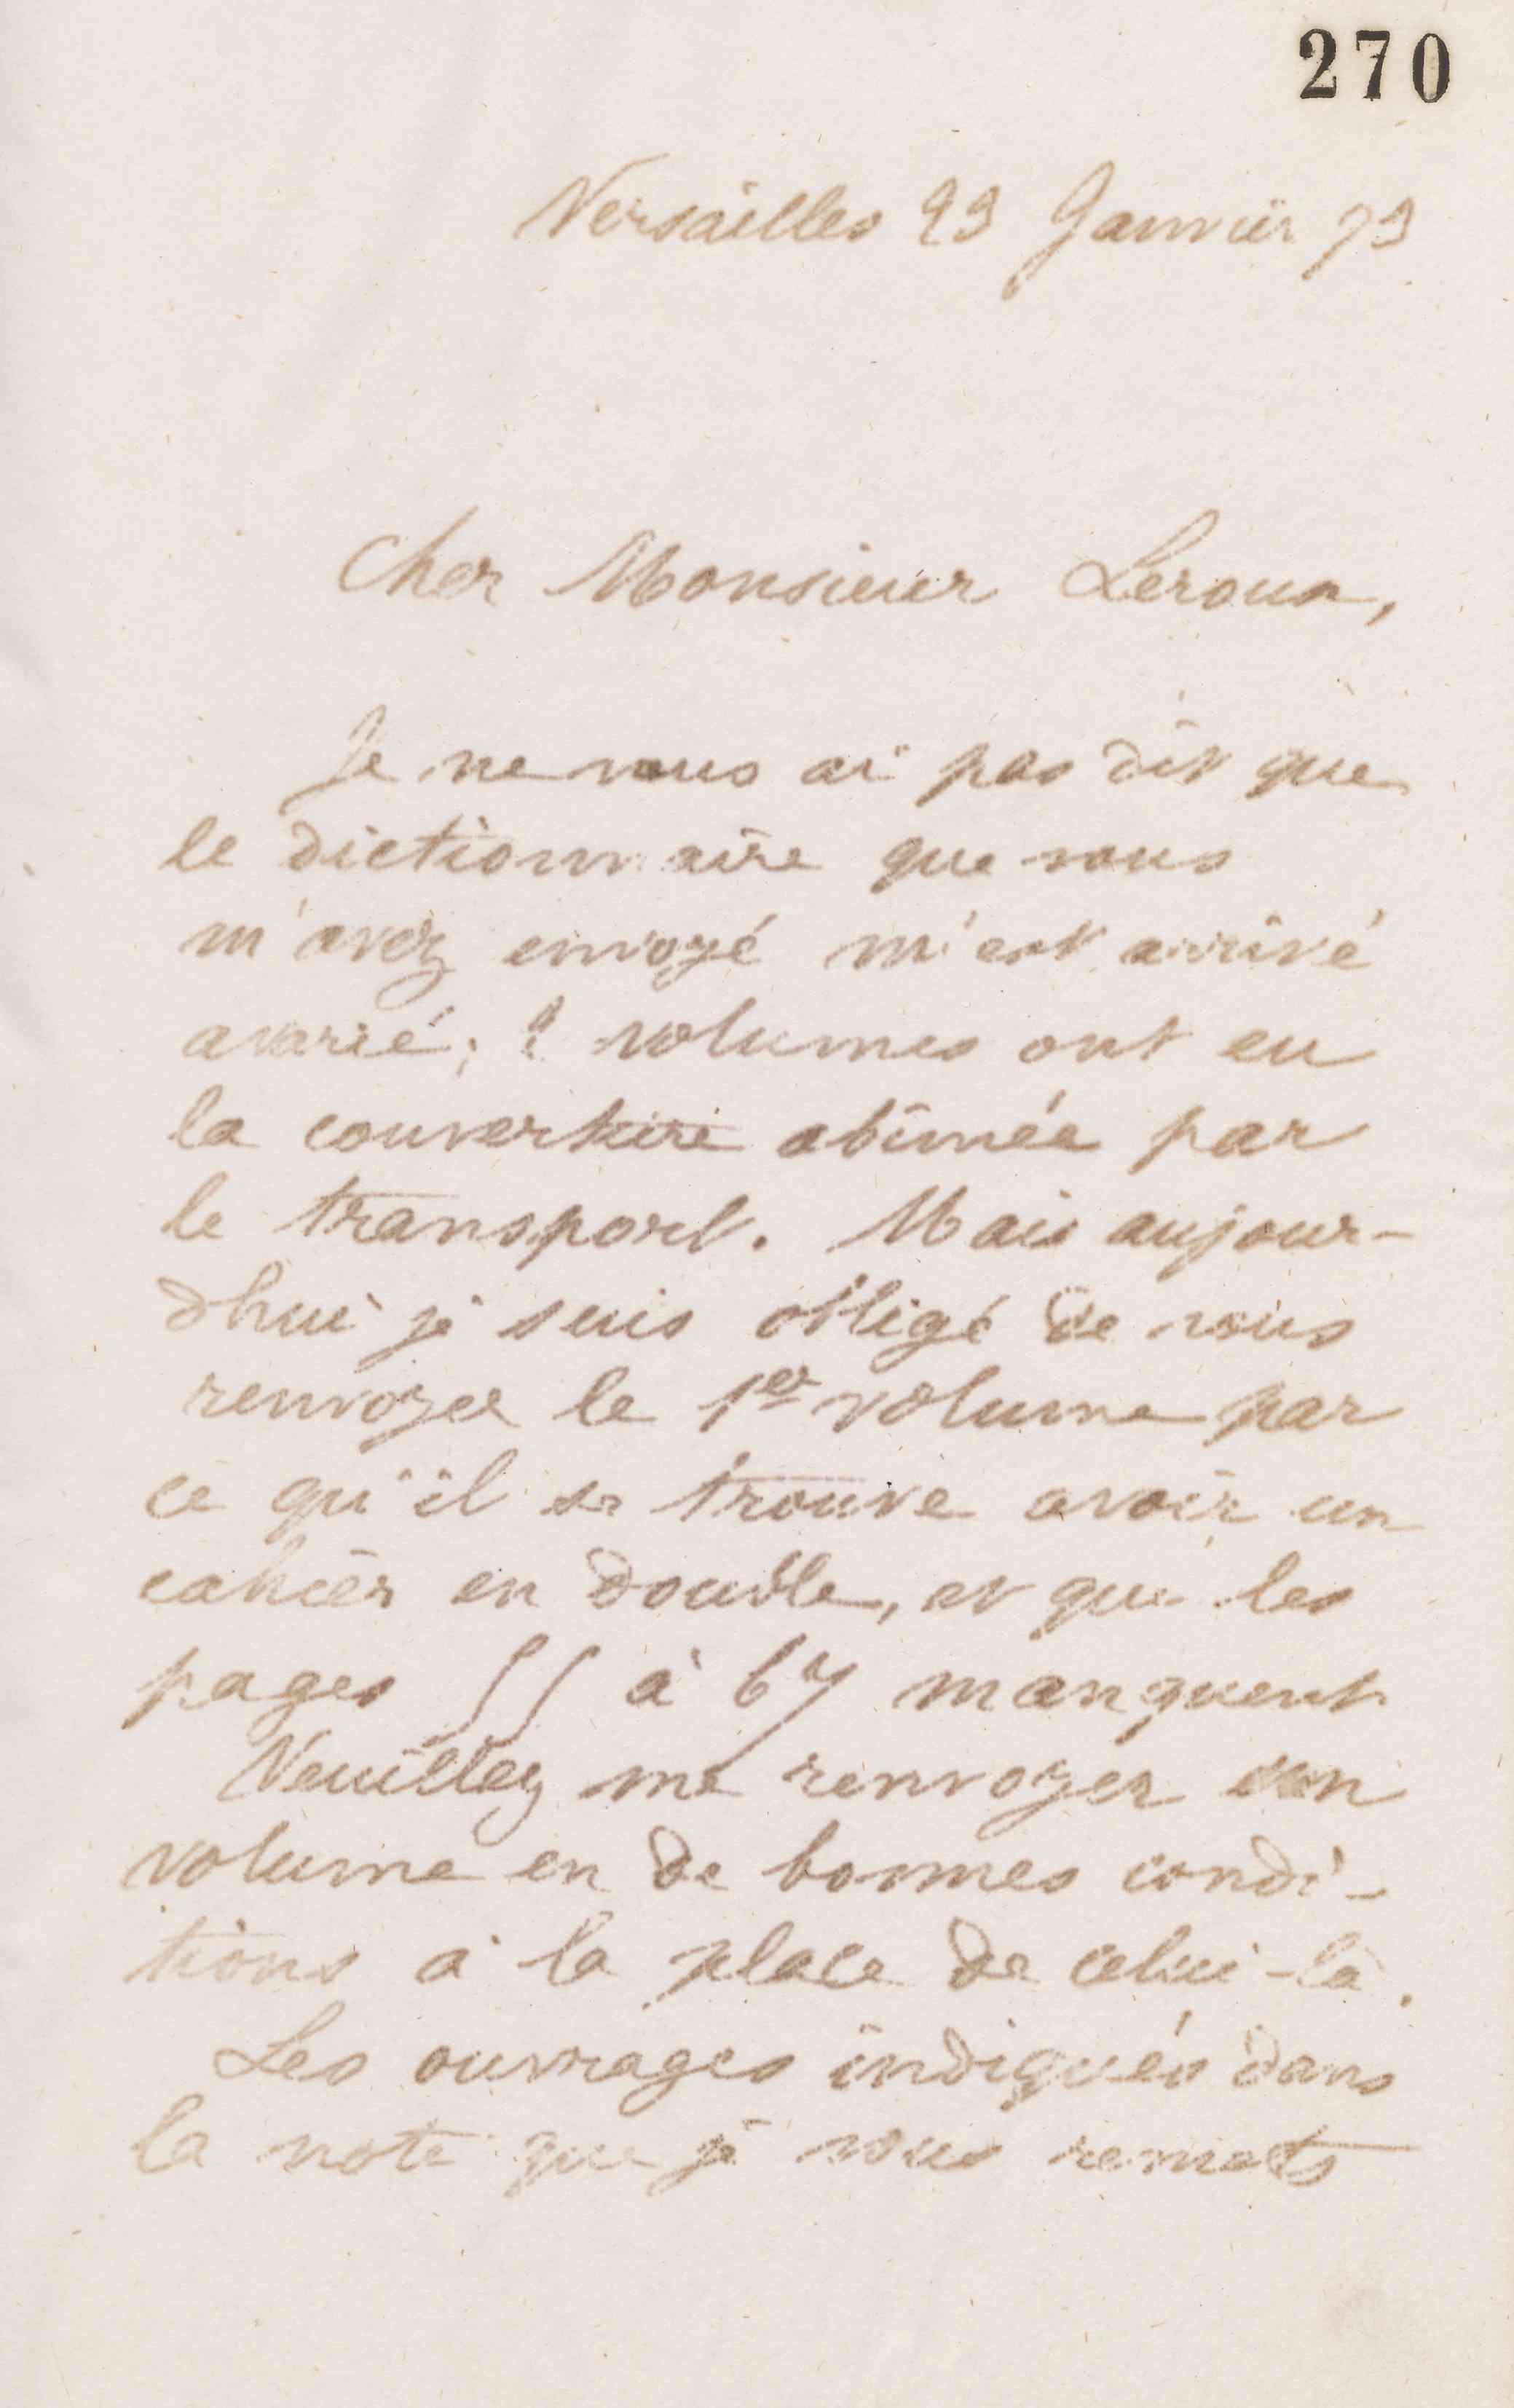 270
Versailles 23 Janvier 79
Cher Monsieur Leroux,
Je ne vous ai pas dit que
le dictionnaire que vous
m'avez envoyé m'est arrivé
avarié; 2 volumes ont eu
la couverture abîmée par
le transport. Mais aujour-
dhui je suis obligé de vous
renvoyer le 1er volume par
ce qu'il se trouve avoir un
cahier en double, et que les
pages 55 à 67 manquent
Veuillez me renvoyer un
volume en de bonnes condi-
tions à la place de celui-là.
Les ouvrages indiqués dans
la note que je vous remets